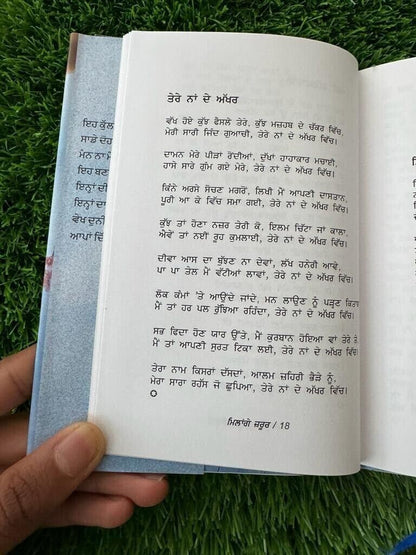 ਤੇਰੇ ਨਾਂ ਦੇ ਅੱਖਰ
ਵੱਖ ਹੋਏ ਕੁੱਝ ਫੈਸਲੇ ਤੇਰੇ, ਕੁੱਝ ਮਜ਼ਹਬ ਦੇ ਚੱਕਰ ਵਿੱਚ,
ਮੇਰੀ ਸਾਰੀ ਜਿੰਦ ਗੁਆਚੀ, ਤੇਰੇ ਨਾਂ ਦੇ ਅੱਖਰ ਵਿੱਚ।
ਦਾਮਨ ਮੇਰੇ ਪੀੜਾਂ ਰੋਂਦੀਆਂ, ਦੁੱਖਾਂ ਹਾਹਾਕਾਰ ਮਚਾਈ,
ਹਾਸੇ ਸਾਰੇ ਗੁੰਮ ਗਏ ਮੇਰੇ, ਤੇਰੇ ਨਾਂ ਦੇ ਅੱਖਰ ਵਿੱਚ।
ਕਿੰਨੇ ਅਰਸੇ ਸੋਚਣ ਮਗਰੋਂ, ਲਿਖੀ ਮੈਂ ਆਪਣੀ ਦਾਸਤਾਨ,
ਪੂਰੀ ਆ ਕੇ ਵਿੱਚ ਸਮਾ ਗਈ, ਤੇਰੇ ਨਾਂ ਦੇ ਅੱਖਰ ਵਿੱਚ।
ਕੁੱਝ ਤਾਂ ਹੋਣਾ ਨਜ਼ਰ ਤੇਰੀ ਕੋ, ਇਲਮ ਚਿੱਟਾ ਜਾਂ ਕਾਲਾ,
ਐਵੇਂ ਤਾਂ ਨਈਂ ਰੂਹ ਕੁਮਲਾਈ, ਤੇਰੇ ਨਾਂ ਦੇ ਅੱਖਰ ਵਿੱਚ।
ਦੀਵਾ ਆਸ ਦਾ ਬੁੱਝਣ ਨਾ ਦੇਵਾਂ, ਲੱਖ ਹਨੇਰੀ ਆਵੇ,
ਪਾ ਪਾ ਤੇਲ ਮੈਂ ਵੱਟੀਆਂ ਲਾਵਾਂ, ਤੇਰੇ ਨਾਂ ਦੇ ਅੱਖਰ ਵਿੱਚ।
ਲੋਕ ਕੰਮਾਂ 'ਤੇ ਆਉਂਦੇ ਜਾਂਦੇ, ਮਨ ਲਾਉਣ ਨੂੰ ਪੜ੍ਹਣ
ਮੈਂ ਤਾਂ ਹਰ ਪਲ ਰੁੱਝਿਆ ਰਹਿੰਦਾ, ਤੇਰੇ ਨਾਂ ਦੇ ਅੱਖਰ ਵਿੱਚ।
ਸਭ ਫਿਦਾ ਹੋਣ ਯਾਰ ਉੱਤੇ, ਮੈਂ ਕੁਰਬਾਨ ਹੋਇਆ ਵਾਂ ਤੇਰੇ
ਮੈਂ ਤਾਂ ਆਪਣੀ ਸੁਰਤ ਟਿਕਾ ਲਈ, ਤੇਰੇ ਨਾਂ ਦੇ ਅੱਖਰ ਵਿੱਚ।
ਤੇਰਾ ਨਾਮ ਕਿਸਰਾਂ ਦੱਸਦਾਂ, ਆਲਮ ਜ਼ਹਿਰੀ ਭੈੜੇ ਨੂੰ,
ਮੇਰਾ ਸਾਰਾ ਰਹੱਸ ਜੋ ਛੁਪਿਆ, ਤੇਰੇ ਨਾਂ ਦੇ ਅੱਖਰ ਵਿੱਚ।
ਮਿਲਾਂਗੇ ਜ਼ਰੂਰ / 18
ਇਹ ਕੁੱਲ
ਸਾਡੇ
ਮੰਨ ਨਾ
ਇਹ ਬਣ
ਇਨ੍ਹਾਂ ਦੀ
ਇਨ੍ਹਾਂ ਦਾ
ਵੇਖ ਦੁਨੀ
ਆਪਾਂ ਦਿ